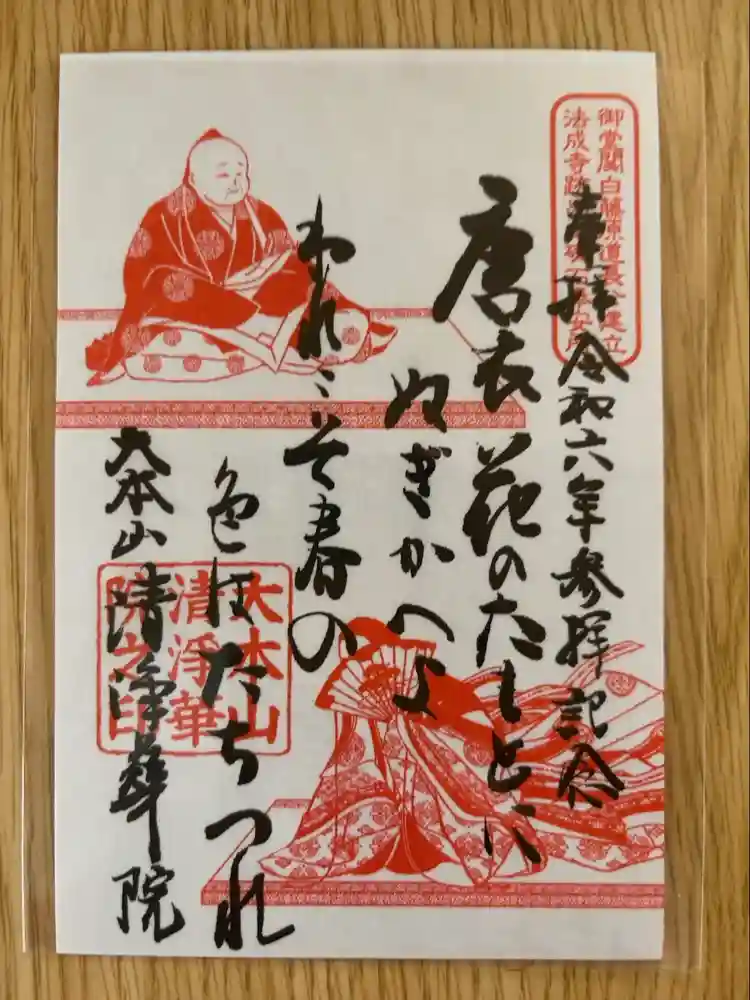 御堂關白藤原道長公建立
法成寺跡
奉拝 令和六年参拝記念
唐衣花のたもとに
ぬぎかへよ
われこそ春の
色はたちつれ
大本山
清淨華
院之印
大本山 清浄華院